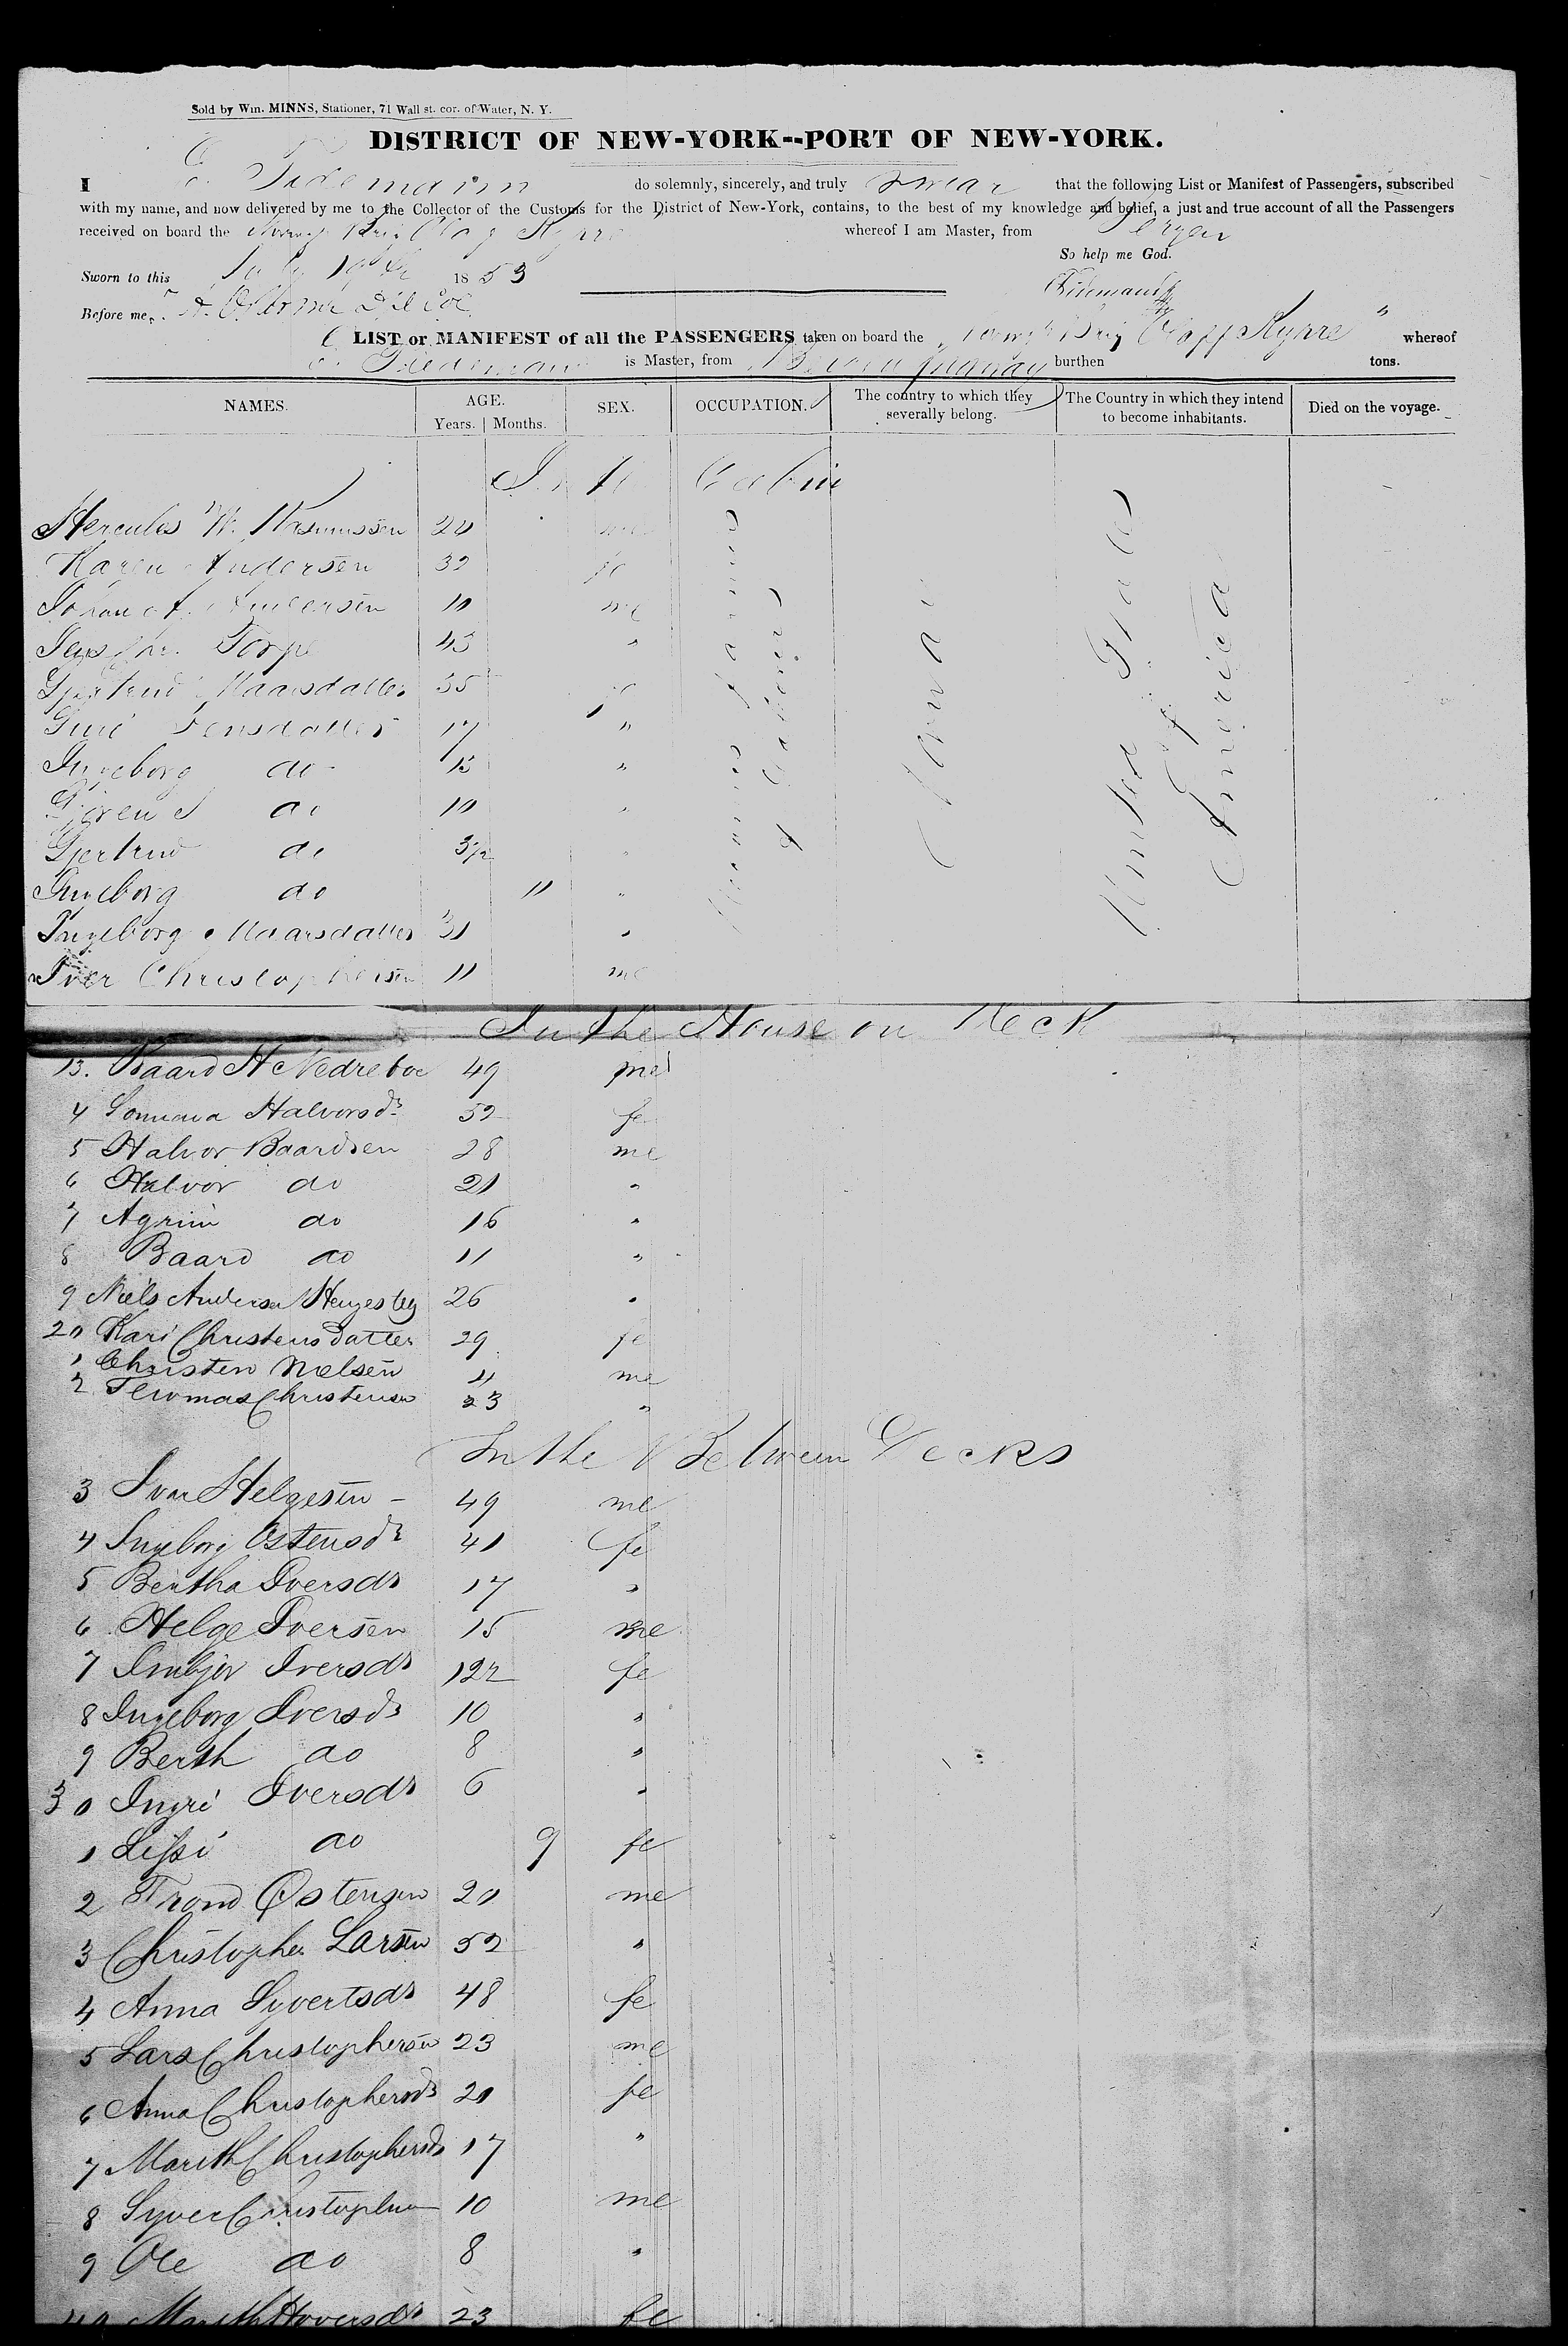 Sold by Wm. MINNS, Stationer, 71 Wall st. cor. of Water, N. Y.
DISTRICT OF NEW-YORK--PORT OF NEW-YORK.
I do solemnly, sincerely, and truly swear that the following List or Manifest of Passengers, subscribed
with my name, and now delivered by me to the Collector of the Customs for the District of New-York, contains, to the best of my knowledge and belief, a just and true account of all the Passengers
received on board the whereof I am Master, from Bergen
So help me God.
Sworn to this July 1853
Before me,
LIST or MANIFEST of all the PASSENGERS taken on board the Brig Olaff Kyrre whereof
is Master, from burthen tons.
NAMES. AGE. SEX. OCCUPATION. The country to which they severally belong. The Country in which they intend to become inhabitants. Died on the voyage.
Years. Months.
In the Cabin
Hercules Rasmussen 20 me
Karen Andersen 32 fe
Johan A. Andersen 10 me
Torpe 43 "
Gjertrud Maarsdatter 35 fe
Guri Jensdatter 17 "
Ingeborg do 13 "
do 10 "
Gjertrud do 3½ "
Ingeborg do 11 "
Ingeborg Maarsdatter 31 "
Iver Christophersen 11 me
United States
of
America
In the House on Deck
13. Baard H Nedreboe 49 me
4 Halvorsdr 52 fe
5 Halvor Baardsen 28 me
6 Halvor do 21 "
7 Agrim do 16 "
8 Baard do 11 "
9 Niels Andersen 26 "
20 Kari Christensdatter 29 fe
1 Christen Nielsen 4 me
2 Thomas Christensen 23 "
In the Between Decks
3 Ivar Helgesen 49 me
4 Ingeborg Ostensdr 41 fe
5 Bertha Iversdr 17 "
6 Helge Iversen 15 me
7 Iversdr 12½ fe
8 Ingeborg Iversdr 10 "
9 Berth do 8 "
30 Ingri Iversdr 6 "
1 Lissi do 9 fe
2 Trond Ostensen 20 me
3 Christopher Larsen 52 "
4 Anna Syvertsdr 48 fe
5 Lars Christophersen 23 me
6 Anna Christophersdr 20 fe
7 Marith Christophersdr 17 "
8 Syver Christophersen 10 me
9 Ole do 8 "
40 Marith Hoversdr 23 fe